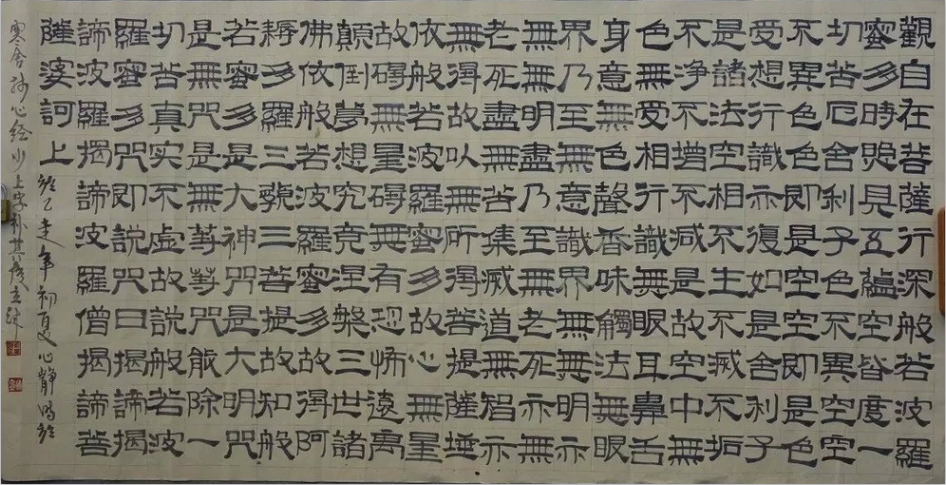 觀自在菩薩行深般若波羅
蜜多時照見五蘊空皆度一
切苦厄舍利子色不異空空
不異色色即是空空即是色
受想行識亦復如是舍利子
是諸法空相不生不滅不垢
不淨不增不減是故空中無
色無受相行識無眼耳鼻舌
身意無色聲香味觸法無眼
界乃至無意識界無無明亦
無無明盡乃至無老死亦無
老死盡無苦集滅道無智亦
無得故以無所得菩提薩埵
依般若波羅蜜多故心無罣
故礙無罣礙無有恐怖遠離
顛倒夢想究竟涅槃三世諸
佛依般若波羅蜜多故得阿
耨多羅三藐三菩提故知般
若蜜多是大神咒是大明咒
是無咒是無等等咒能除一
切苦真实不虛故說般若波
羅蜜多咒即說咒曰揭諦揭
諦波羅揭諦波羅僧揭諦菩
薩婆訶上 乙未年初夏心靜
心经少上字补其後